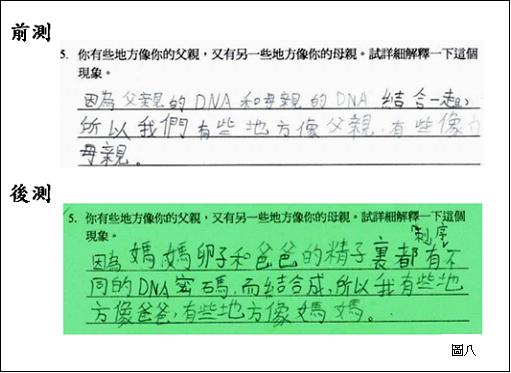 前測
5. 你有些地方像你的父親，又有另一些地方像你的母親。試詳細解釋一下這個
現象。
因為父親的DNA和母親的DNA結合一起，
所以我們有些地方像父親，有些像
母親。
後測
5. 你有些地方像你的父親，又有另一些地方像你的母親。試詳細解釋一下這個
現象。
因為媽媽卵子和爸爸的精子裏都有不
同的DNA密碼，而結合成，所以我有些地
方像爸爸，有些地方像媽媽。
圖八